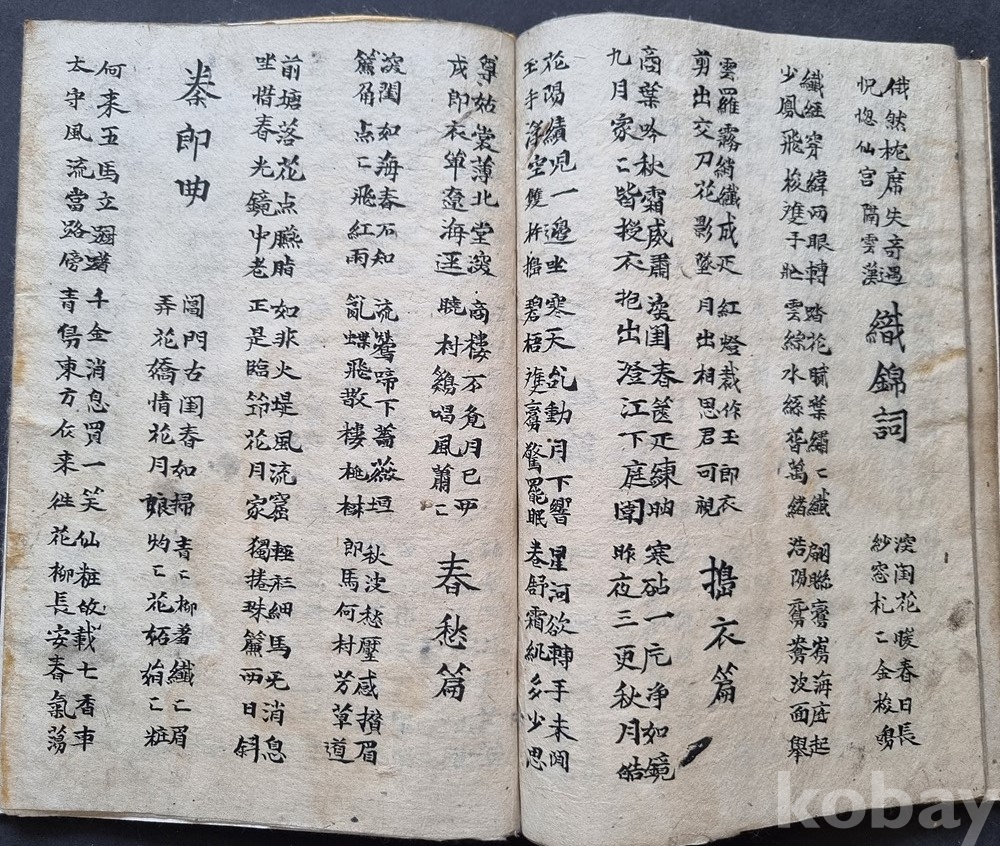 俄然枕席失奇遇
怳惚仙宮隔雲漢
織錦詞
深閨花暖春日長
紗窓札〻金梭鳴
纖經穿緯両眼轉
少鳳飛梭進手忙
踏花賦葉繡〻纖
雲綜水綜萬緒
翩聯鸞海底起
浩陽鴛鴦波面舉
雲羅霧綃纖成疋
剪出交刀花影墜
紅燈裁作玉郎衣
月出相思君可視
搗衣篇
商葉吟秋霜威肅
九月家〻皆授衣
深閨春篋疋練眀
抱出澄江下庭圍
寒砧一片净如鏡
昨夜三更秋月皓
花陽績児一邊坐
玉手浮空雙杵搗
寒天乱動月下響
碧梧進夢驚罷眠
星河欲轉手未閒
卷舒霜紈多少思
尊姑裳薄北堂深
戍郎衣單遼海遥
商楼不覓月已西
曉村鷄唱風蕭〻
春愁篇
深閨如海春不知
簾角点〻飛紅雨
流鶯啼下薔薇垣
乱蝶飛散樓桃林
秋波愁壓感攢眉
郎馬何村芳草道
前塘落花点臙脂
坐惜春光鏡中老
如非火堤風流窟
正是臨節花月家
軽衫細馬旡消息
獨捲珠簾西日斜
秦郎曲
閶門古閨春如掃
弄花嬌情花月娘
青〻柳着纖〻眉
灼〻花妬〻粧
何来五馬立踟躇
太守風流當路傍
千金消息買一笑
青鳥東方依来徃
仙粧故載七香車
花柳長安春氣蕩
kobay